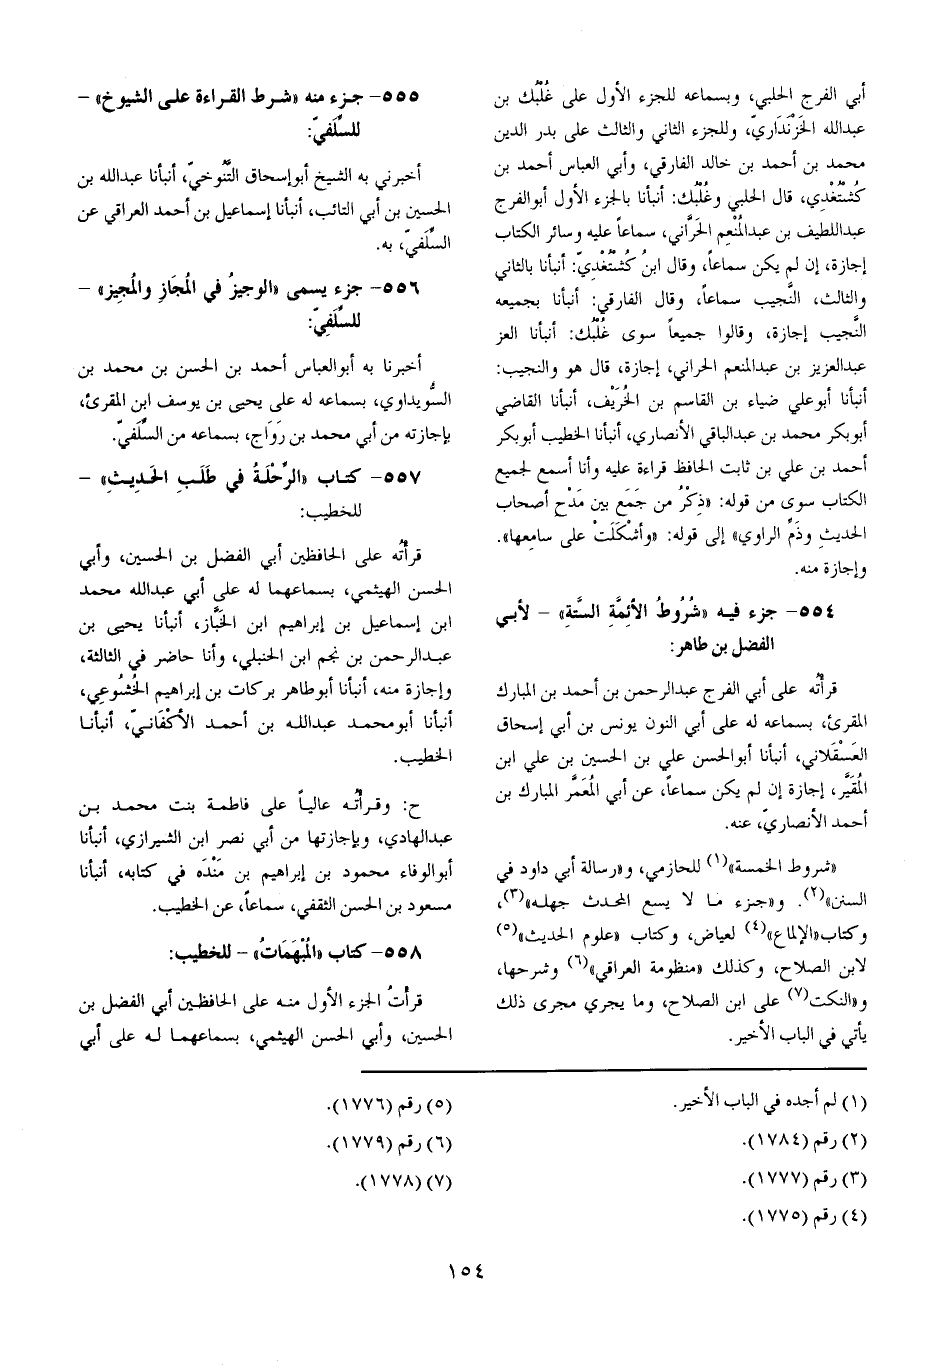 أبي الفرج الحلبي، وبسماعه للجزء الأول على غُلْبُك بن
عبدالله الخَزْنَدَاريّ، وللجزء الثاني والثالث على بدر الدين
محمد بن أحمد بن خالد الفارقي، وأبي العباس أحمد بن
كُشْتُغْدِي، قال الحلبي وغُلْبُك: أنبأنا بالجزء الأول أبوالفرج
عبداللطيف بن عبدالمُنْعِم الحَرَّاني، سماعاً عليه وسائر الكتاب
إجازة، إن لم يكن سماعاً، وقال ابنُ كُشْتُغْدِيّ: أنبأنا بالثاني
والثالث، النَّجيب سماعاً، وقال الفارقي: أنبأنا بجميعه
النَّجيب إجازة، وقالوا جميعاً سوى غُلْبُك: أنبأنا العز
عبدالعزيز بن عبدالمنعم الحراني، إجازة، قال هو والنجيب:
أنبأنا أبوعلي ضياء بن القاسم بن الخُرَيْف، أنبأنا القاضي
أبوبكر محمد بن عبدالباقي الأنصاري، أنبأنا الخطيب أبوبكر
أحمد بن علي بن ثابت الحافظ قراءة عليه وأنا أسمع لجميع
الكتاب سوى من قوله: «ذِكْرُ من جَمَع بين مَدْح أصحاب
الحديث وذَمِّ الراوي» إلى قوله: «وأشْكَلَتْ على سامعها».
وإجازة منه.
٥٥٤- جزء فيه «شُرُوطُ الأئِمَّةِ الستَّة» - لأبي
الفضل بن طاهر:
قرأتُه على أبي الفرج عبدالرحمن بن أحمد بن المبارك
المقرئ، بسماعه له على أبي النون يونس بن أبي إسحاق
العَسْقَلاني، أنبأنا أبوالحسن علي بن الحسين بن علي ابن
المُقَيَّر، إجازة إن لم يكن سماعاً، عن أبي المُعَمَّر المبارك بن
أحمد الأنصاريّ، عنه.
«شروط الخمسة»(١) للحازمي، و«رسالة أبي داود في
السنن»(٢). و«جزء مـا لا يسع المحدث جهله»(٣)،
وكتاب«الإلماع»(٤) لعياض، وكتاب «علوم الحديث»(٥)
لابن الصلاح، وكذلك «منظومة العراقي»(٦) وشرحها،
و«النكت(٧) على ابن الصلاح، وما يجري مجرى ذلك
يأتي في الباب الأخير.
٥٥٥- جـزء منه «شـرط القـراءة علـى الشيوخ» -
للسِّلَفيّ:
أخبرني به الشيخ أبوإسحاق التَّنُوخيّ، أنبأنا عبدالله بن
الحسين بن أبي التائب، أنبأنا إسماعيل بن أحمد العراقي عن
السِّلَفيّ، به.
٥٥٦- جزء يسمى «الوجيزُ في المُجَازِ والمُجِيز» -
للسِّلَفِيّ:
أخبرنا به أبوالعباس أحمد بن الحسن بن محمد بن
السُّويداوي، بسماعه له على يحيى بن يوسف ابن المقرئ،
بإجازته من أبي محمد بن رَوَاج، بسماعه من السِّلَفيّ.
٥٥٧- كتـاب «الرِّحْلَةُ في طَلَبِ الحَديثِ» -
للخطيب:
قرأتُه على الحافظين أبي الفضل بن الحسين، وأبي
الحسن الهيثمي، بسماعهما له على أبي عبدالله محمد
ابن إسماعيل بن إبراهيم ابن الخَبَّاز، أنبأنا يحيى بن
عبـدالرحمن بن نجم ابن الحنبلي، وأنا حاضر في الثالثة،
وإجازة منه، أنبأنا أبوطاهر بركات بن إبراهيم الخُشُوعي،
أنبأنا أبومحمـد عبداللـه بن أحمـد الأكْفَانيّ، أنبأنـا
الخطيب.
ح: وقـرأتُـه عالياً على فاطمة بنت محمـد بـن
عبدالهادي، وبإجازتها من أبي نصر ابن الشيرازي، أنبأنا
أبوالوفاء محمود بن إبراهيم بن مَنْدَه في كتابه، أنبأنا
مسعود بن الحسن الثقفي، سماعاً، عن الخطيب.
٥٥٨- كتاب «المُبْهَمَاتُ» - للخطيب:
قرأتُ الجزء الأول منـه على الحافظـين أبي الفضل بن
الحسين، وأبي الحسن الهيثمي، بسماعهمـا لـه على أبي
(١) لم أجده في الباب الأخير.
(٢) رقم (١٧٨٤).
(٣) رقم (١٧٧٧).
(٤) رقم (١٧٧٥).
(٥) رقم (١٧٧٦).
(٦) رقم (١٧٧٩).
(٧) (١٧٧٨).
١٥٤